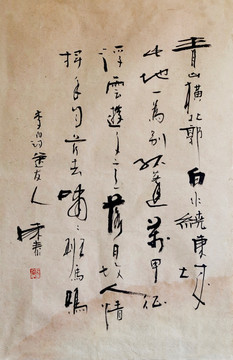 青山横北郭白水繞東城
此地一為别孤蓬萬里征
浮雲遊子意落日故人情
揮手自兹去嘯嘯班馬鳴
李白詩送友人